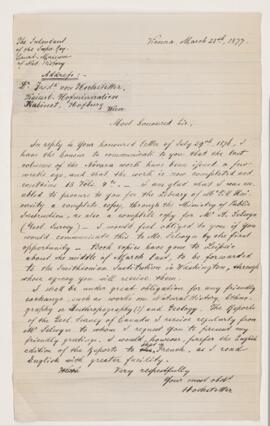 The Intendant
of the Imper. Roy.
Court-Museum
of Nat. History
Vienna, March 22nd, 1877.
Address:-
Dr Ferd. von Hochstetter,
Kaiserl. Hofmineralien
Kabinet, Hofburg
Wien
Most honoured Sir,
In reply to Your honoured letter of July 29th 1876, I
have the honour to communicate to you that the last
volumes of the Novara work have been issued a few
weeks ago, and that the work is now completed and
contains 18 Vols. I am glad that I was en
abled to procure to you for the library of
a complete copy, through the Ministry of Public
Instruction, as also a complete copy for Mr A. Selwyn
(Geol. Survey). I would feel obliged to you if you
would communicate this to Mr Selwyn by the first
opportunity. Both copies have gone to Leipsic
about the middle of March last, to be forwarded
to the Smithsonian Institution in Washington, through
whose agency you will receive them.
I shall be under great obligation for any friendly
exchange, such as works on Natural History, Ethno-
graphy or Anthropography (?) and Geology. The Reports
of the Geol. Survey of Canada I receive regularly from
Mr Selwyn to whom I request you to present my
friendly greetings. I would however, prefer the English
edition of the Reports to the French, as I read
English with greater facility.
Very respectfully
Your most obdt
Hochstetter